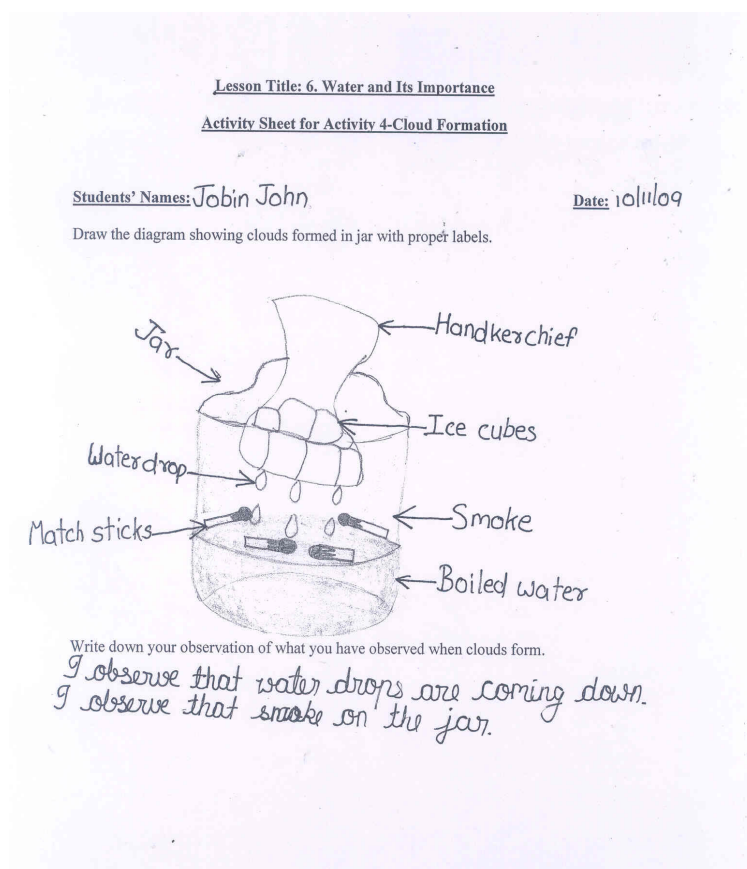 Lesson Title: 6. Water and Its Importance
Activity Sheet for Activity 4-Cloud Formation
Students' Names: Jobin John
Date: 10/11/09
Draw the diagram showing clouds formed in jar with proper labels.
Handkerchief
Jar
Ice cubes
Waterdrop
Smoke
Match sticks
Boiled water
Write down your observation of what you have observed when clouds form.
I observe that water drops are coming down.
I observe that smoke on the jar.